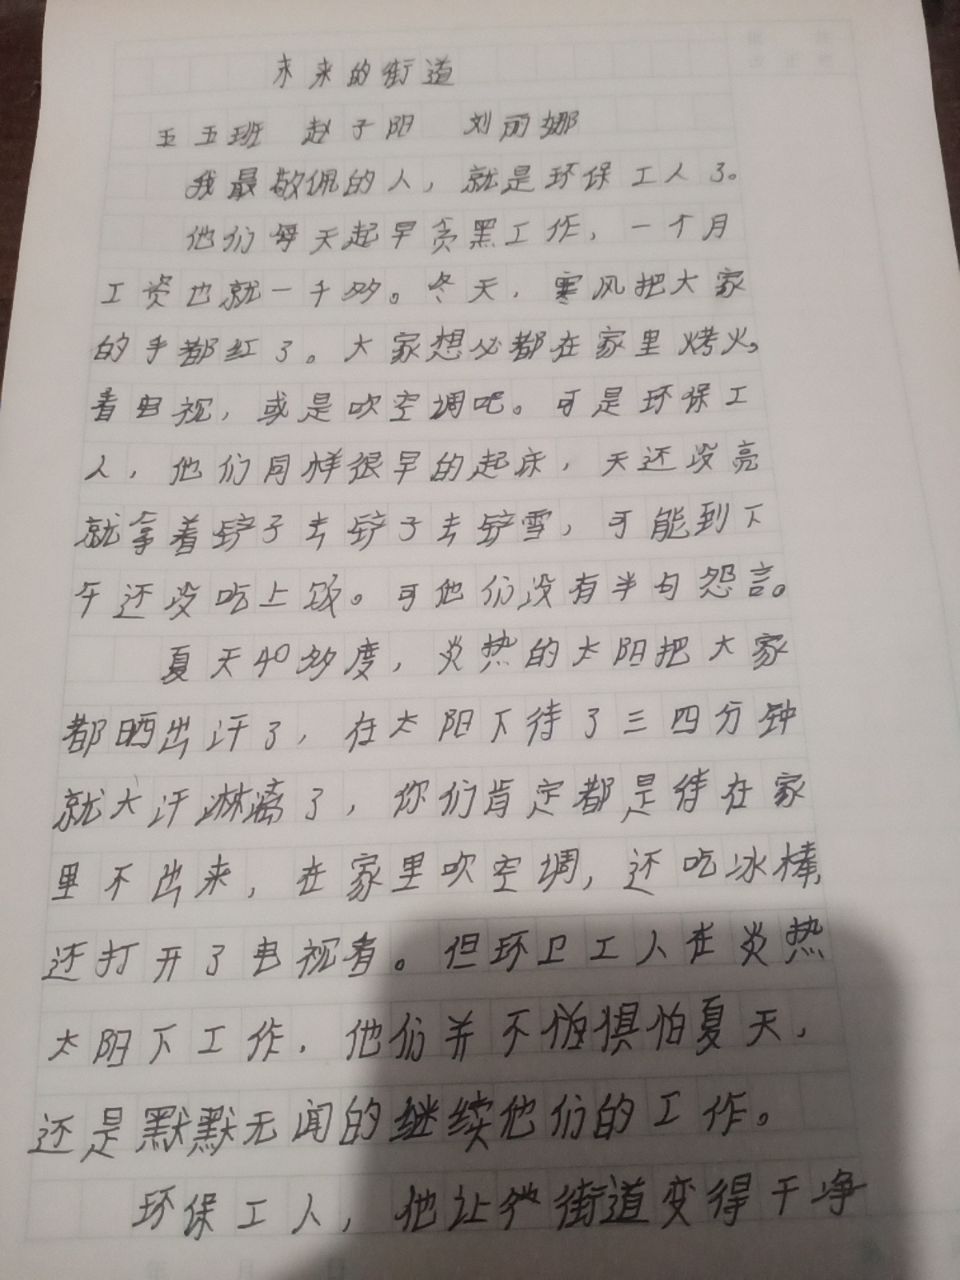 未来的街道
五五班 赵子阳 刘丽娜
我最敬佩的人，就是环保工人了。
他们每天起早贪黑工作，一个月
工资也就一千多。冬天，寒风把大家
的手都红了。大家想必都在家里烤火。
看电视，或是吹空调吧。可是环保工
人，他们同样很早的起床，天还没亮
就拿着铲子去铲子去铲雪，可能到下
午还没吃上饭。可他们没有半句怨言。
夏天40多度，炎热的太阳把大家
都晒出汗了，在太阳下待了三四分钟
就大汗淋漓了，你们肯定都是待在家
里不出来，在家里吹空调，还吃冰棒，
还打开了电视看。但环卫工人在炎热
太阳下工作，他们并不惧怕夏天，
还是默默无闻的继续他们的工作。
环保工人，他让街道变得干净